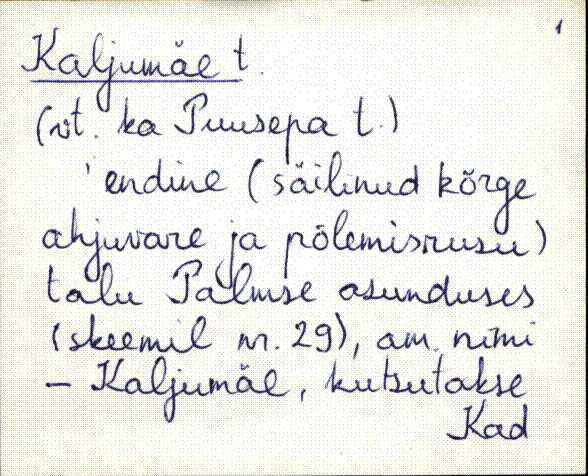 1
Kaljumäe t.
(vt. ka Puusepa t.)
'endine (säilinud kõrge
ahjuvare ja põlemisrusu)
talu Palmse asunduses
(skeemil nr. 29), am. nimi
– Kaljumäe, kutsutakse
Kad